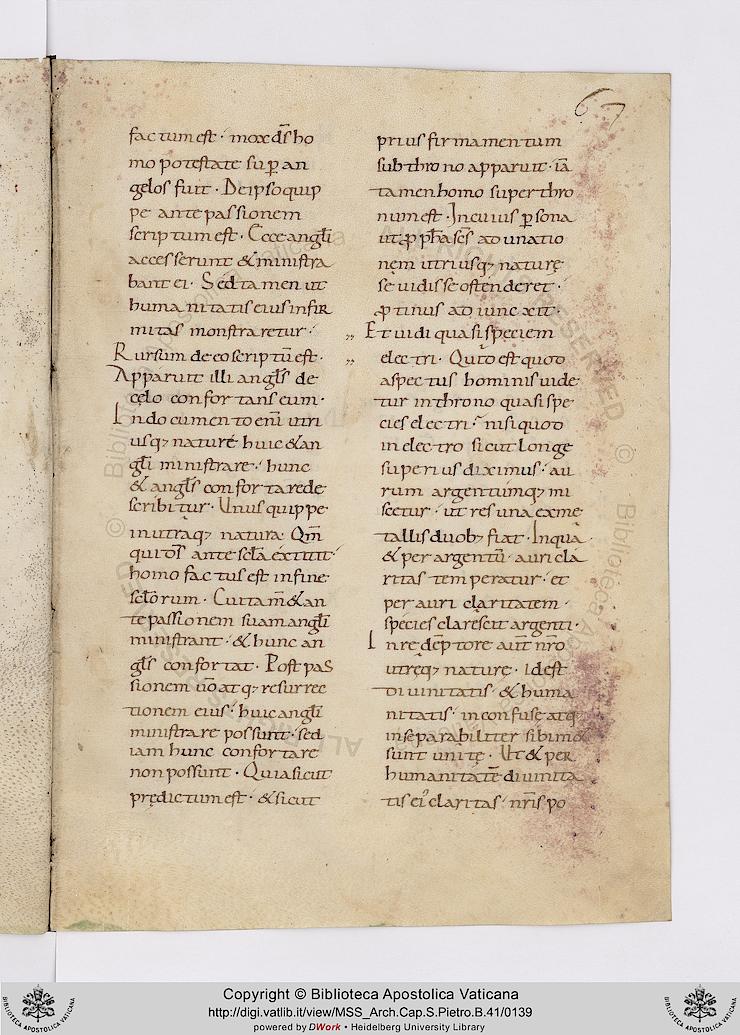 67
factum est · mox ds̄ ho
mo potestate sup̄ an
gelos fuit · De ipso quip
pe ante passionem
scriptum est · Ecce angl̄i
accesserunt & ministra
bant ei · Sed tamen ut
humanitatis eius infir
mitas monstraretur ·
Rursum de eo scriptū est ·
Apparuit illi angl̄s de
cęlo confortans eum ·
In documento enī utri
usq; naturę huic & an
gl̄i ministrare · hunc
& angl̄s confortare de
scribitur · Unus quippe
in utraq; natura · Qm̄
qui ds̄ ante scl̄a extitit ·
homo factus est in fine
scl̄orum · Cui tam̄ & an
te passionem suam angl̄i
ministrant · & hunc an
gl̄s confortat · Post pas
sionem ūo atq; resurrec
tionem eius · huic angl̄i
ministrare possunt · sed
iam hunc confortare
non possunt · Quia sicut
prędictum est · & sicut
prius firmamentum
sub throno apparuit · iā
tamen homo super thro
num est · In cuius p̱sona
ut ꝓph̄a s̄es ad unatio
nem utriusq; naturę
se uidisse ostenderet ·
ꝓtinus adiuncxit ·
Et uidi quasi speciem
electri · Quid est quod
aspectus hominis uide
tur in throno quasi spe
cies electri · nisi quod
in electro sicut longe
superius diximus · au
rum argentumq; mi
scetur · ut res una ex me
tallis duob; fiat · In qua
& per argentū · auri cla
ritas temperatur · et
per auri claritatem ·
species clarescit argenti ·
In redēptore aūt nr̄o
utręq; naturę · id est
diuinitatis · & huma
nitatis · inconfuse atq;
inseparabiliter sibimet
sunt unitę · Ut & per
humanitatē diuinita
tis ei' claritas · nr̄is po
Copyright © Biblioteca Apostolica Vaticana
http://digi.vatlib.it/view/MSS_Arch.Cap.S.Pietro.B.41/0139
powered by DWork • Heidelberg University Library